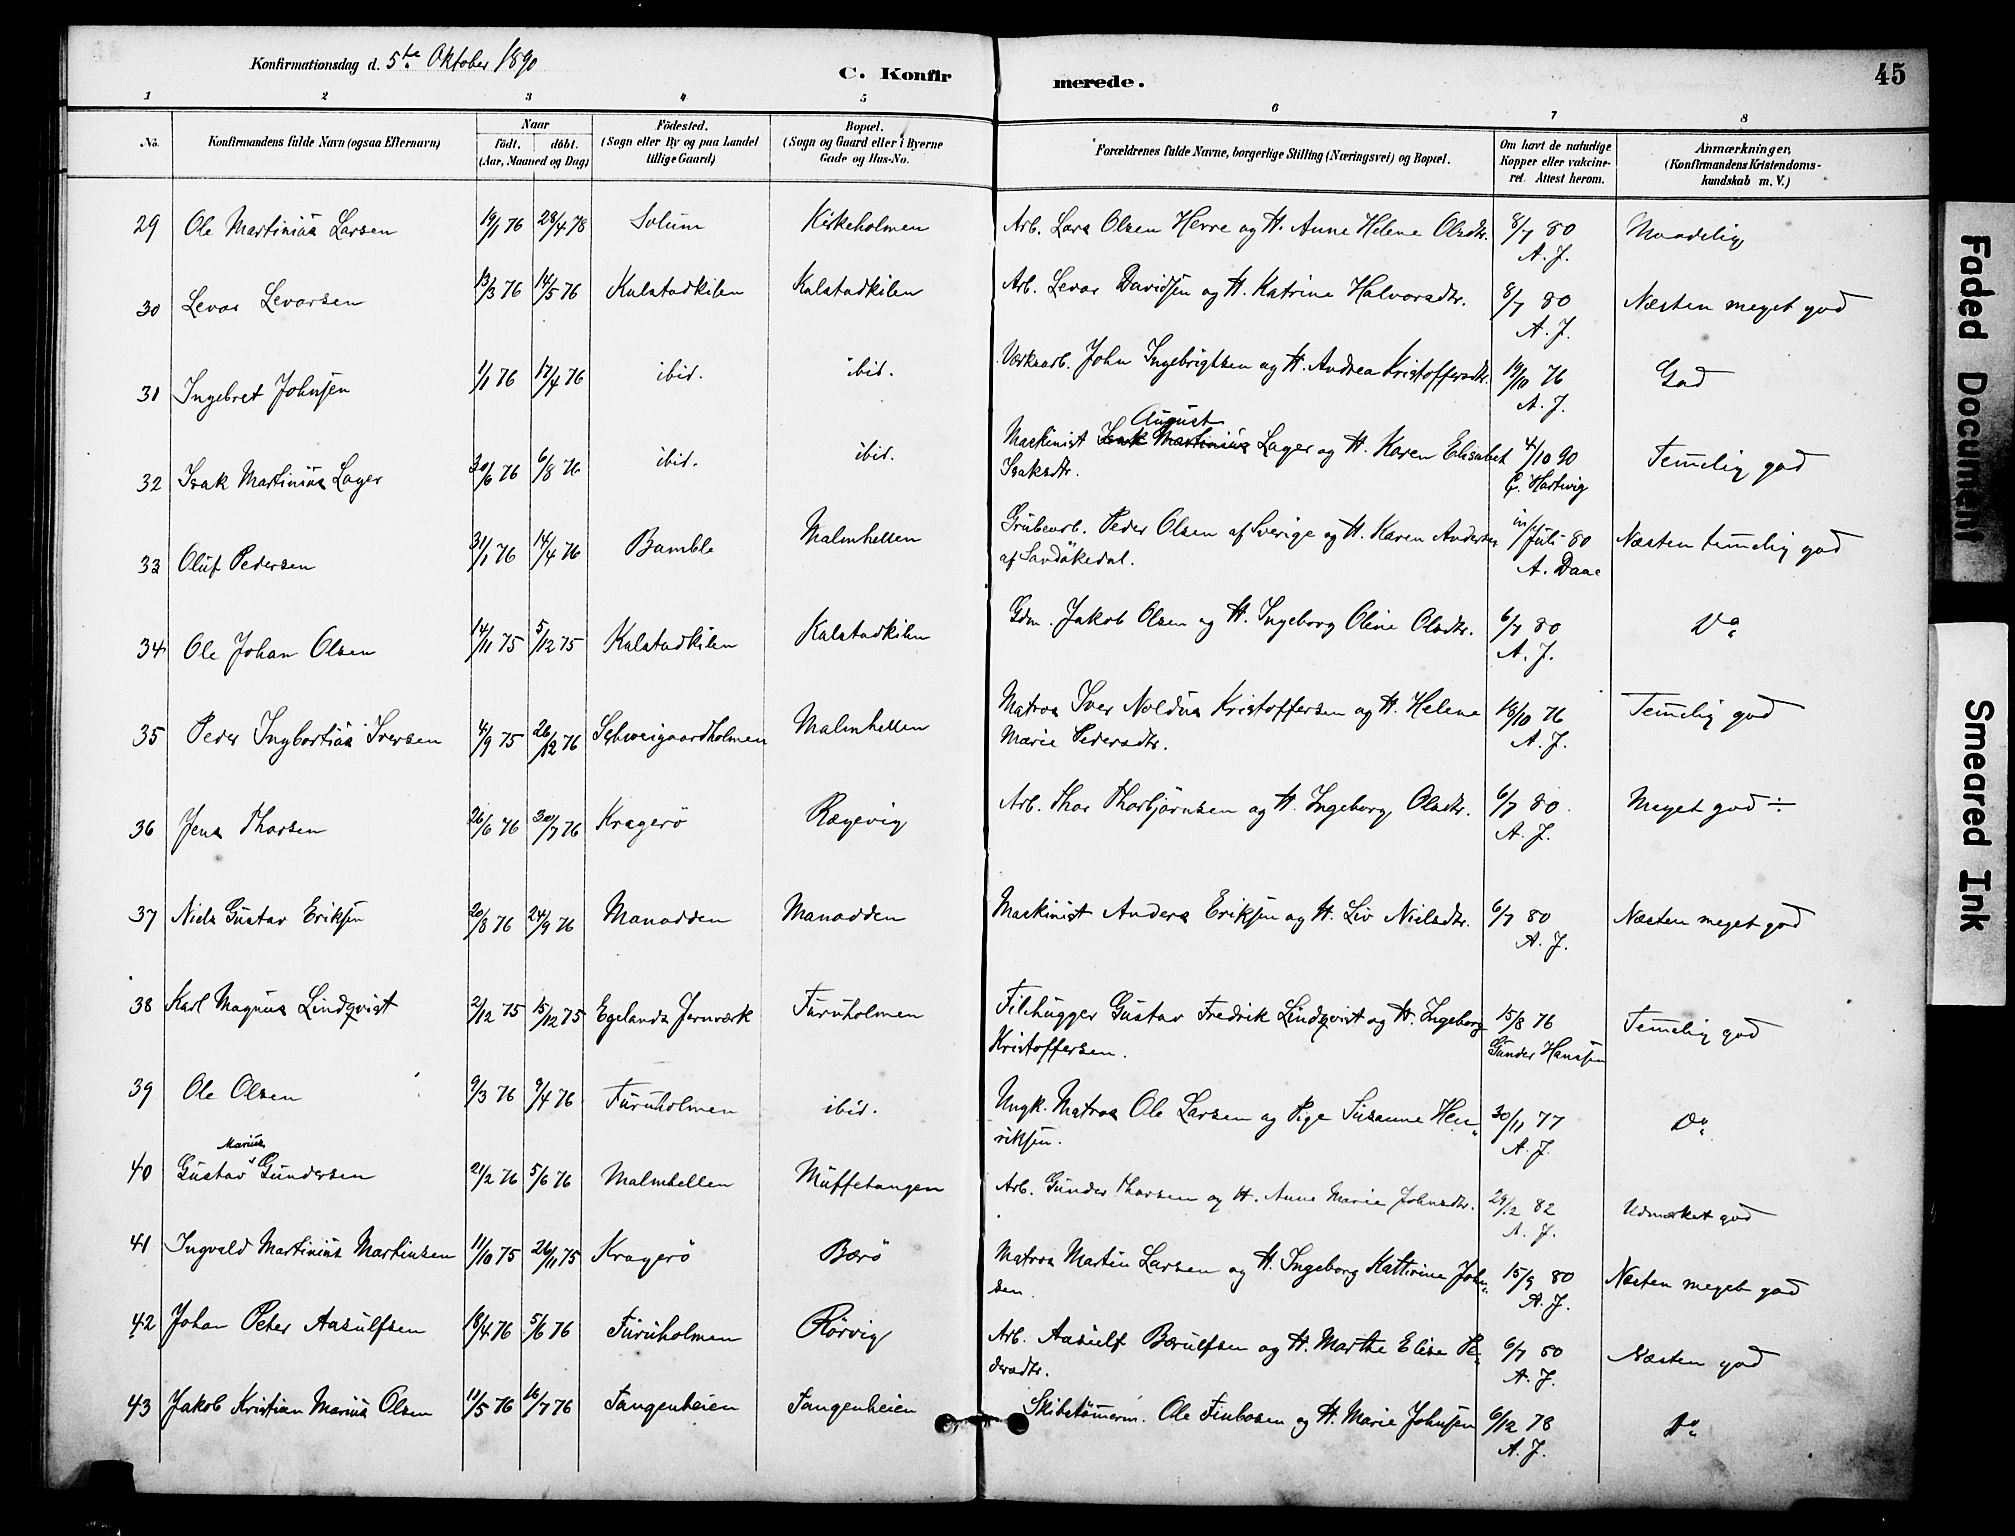 Konfirmationsdag d. 5te Oktober 1890
C. Konfirmerede.
45
1 2 3 4 5 6 7 8
No.
Konfirmandens fulde Navn (ogsaa Efternavn)
Naar
født. døbt.
(Aar, Maaned og Dag)
Fødested.
(Sogn eller By og paa Landet
tillige Gaard)
Bopæl.
(Sogn og Gaard eller i Byerne
Gade og Hus-No.
Forældrenes fulde Navne, borgerlige Stilling (Næringsvei) og Bopæl.
Om havt de naturlige
Kopper eller vakcine-
ret. Attest herom.
Anmærkninger,
(Konfirmandens Kristendoms-
kundskab m. V.)
29 Ole Martinius Larsen 19/1 76 28/4 78 Solum Kirkeholmen Arb. Lars Olsen Herre og H. Anne Helene Olsdtr. 8/7 80 Maadelig
A. J.
30 Levor Levorsen 13/3 76 14/5 76 Kalstadkilen Kalstadkilen Arb. Levor Davidsen og H. Katrine Halvorsdtr. 8/7 80 Næsten meget god
A. J.
31 Ingebret Johnsen 1/1 76 17/4 76 ibid. ibid. Værksarb. John Ingebrigtsen og H. Andrea Kristoffersdtr. 19/10 76 God
A. J.
August
32 Isak Martinius Lager 30/6 76 6/8 76 ibid. ibid. Maskinist Isak Martinius Lager og H. Karen Elisabet 4/10 90 Temelig god
Isaksdtr. C. Hartvig
33 Oluf Pedersen 31/1 76 14/4 76 Bamble Malmhellen Grubearb. Peder Olsen af Sverige og H. Karen Andersen Juli 80 Næsten temelig god
af Sandökedal. A. Daae
34 Ole Johan Olsen 14/11 75 5/12 75 Kalstadkilen Kalstadkilen Gdm. Jakob Olsen og H. Ingeborg Oline Olsdtr. 6/7 80 Do
A. J.
35 Peder Ingbortius Iversen 4/9 75 26/12 76 Schweigaardholmen Malmhellen Matros Iver Noldus Kristoffersen og H. Helene 18/10 76 Temelig god
Marie Pedersdtr. A. J.
36 Jens Thorsen 26/6 76 30/7 76 Kragerö Røgevig Arb. Thor Thorbjørnsen og H. Ingeborg Olsdtr. 6/7 80 Meget god ÷
A. J.
37 Niels Gustav Eriksen 20/8 76 24/9 76 Manodden Manodden Maskinist Anders Eriksen og H. Liv Nielsdtr. 6/7 80 Næsten meget god
A. J.
38 Karl Magnus Lindqvist 2/12 75 15/12 75 Egelands Jernværk Furuholmen Filehugger Gustav Fredrik Lindqvist og H. Ingeborg 15/8 76 Temelig god
Kristoffersen. Gunder Hansen
39 Ole Olsen 9/3 76 9/4 76 Furuholmen ibid. Ungk. Matros Ole Larsen og Pige Susanne Hen- 30/11 77 Do
riksen. A. J.
Marius
40 Gustav Gundersen 21/2 76 5/6 76 Malmhellen Muffetangen Arb. Gunder Thorsen og H. Anne Marie Johnsdtr. 29/12 82 Udmærket god
A. J.
41 Ingvald Martinius Martinsen 11/10 75 26/11 75 Kragerö Bærö Matros Martin Larsen og H. Ingeborg Kattrine John- 15/9 80 Næsten meget god
sen. A. J.
42 Johan Peter Aasulfsen 18/4 76 5/6 76 Furuholmen Rörvig Arb. Aasulf Bærulfsen og H. Marthe Elise Pe- 6/7 80 Næsten god
dersdtr. A. J.
43 Jakob Kristian Marius Olsen 11/5 76 16/7 76 Tangenheien Tangenheien Skibstömerm. Ole Finbosen og H. Marie Johnsen 6/12 78 Do
A. J.
Faded Document
Smeared Ink